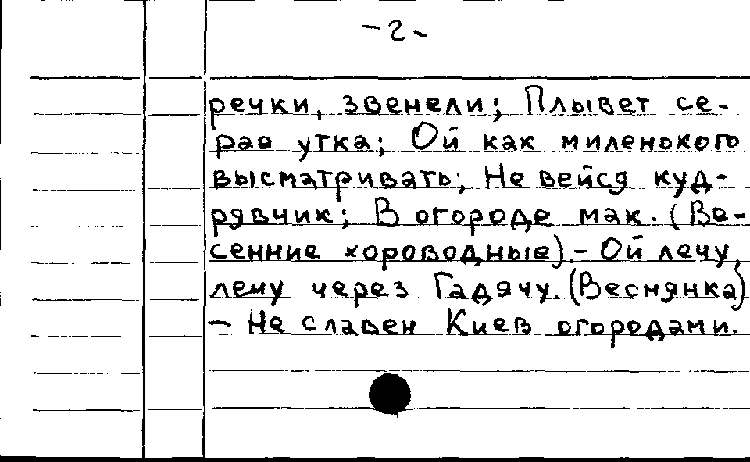 -2-
речки, звенели; Плывет се-
рая утка; Ой как миленького
высматривать; Не вейся куд-
рявчик; В огороде мак. (Ве-
сенние хороводные) - Ой лечу,
лечу через Гадячу. (Веснянка)
- Не славен Киев огородами.